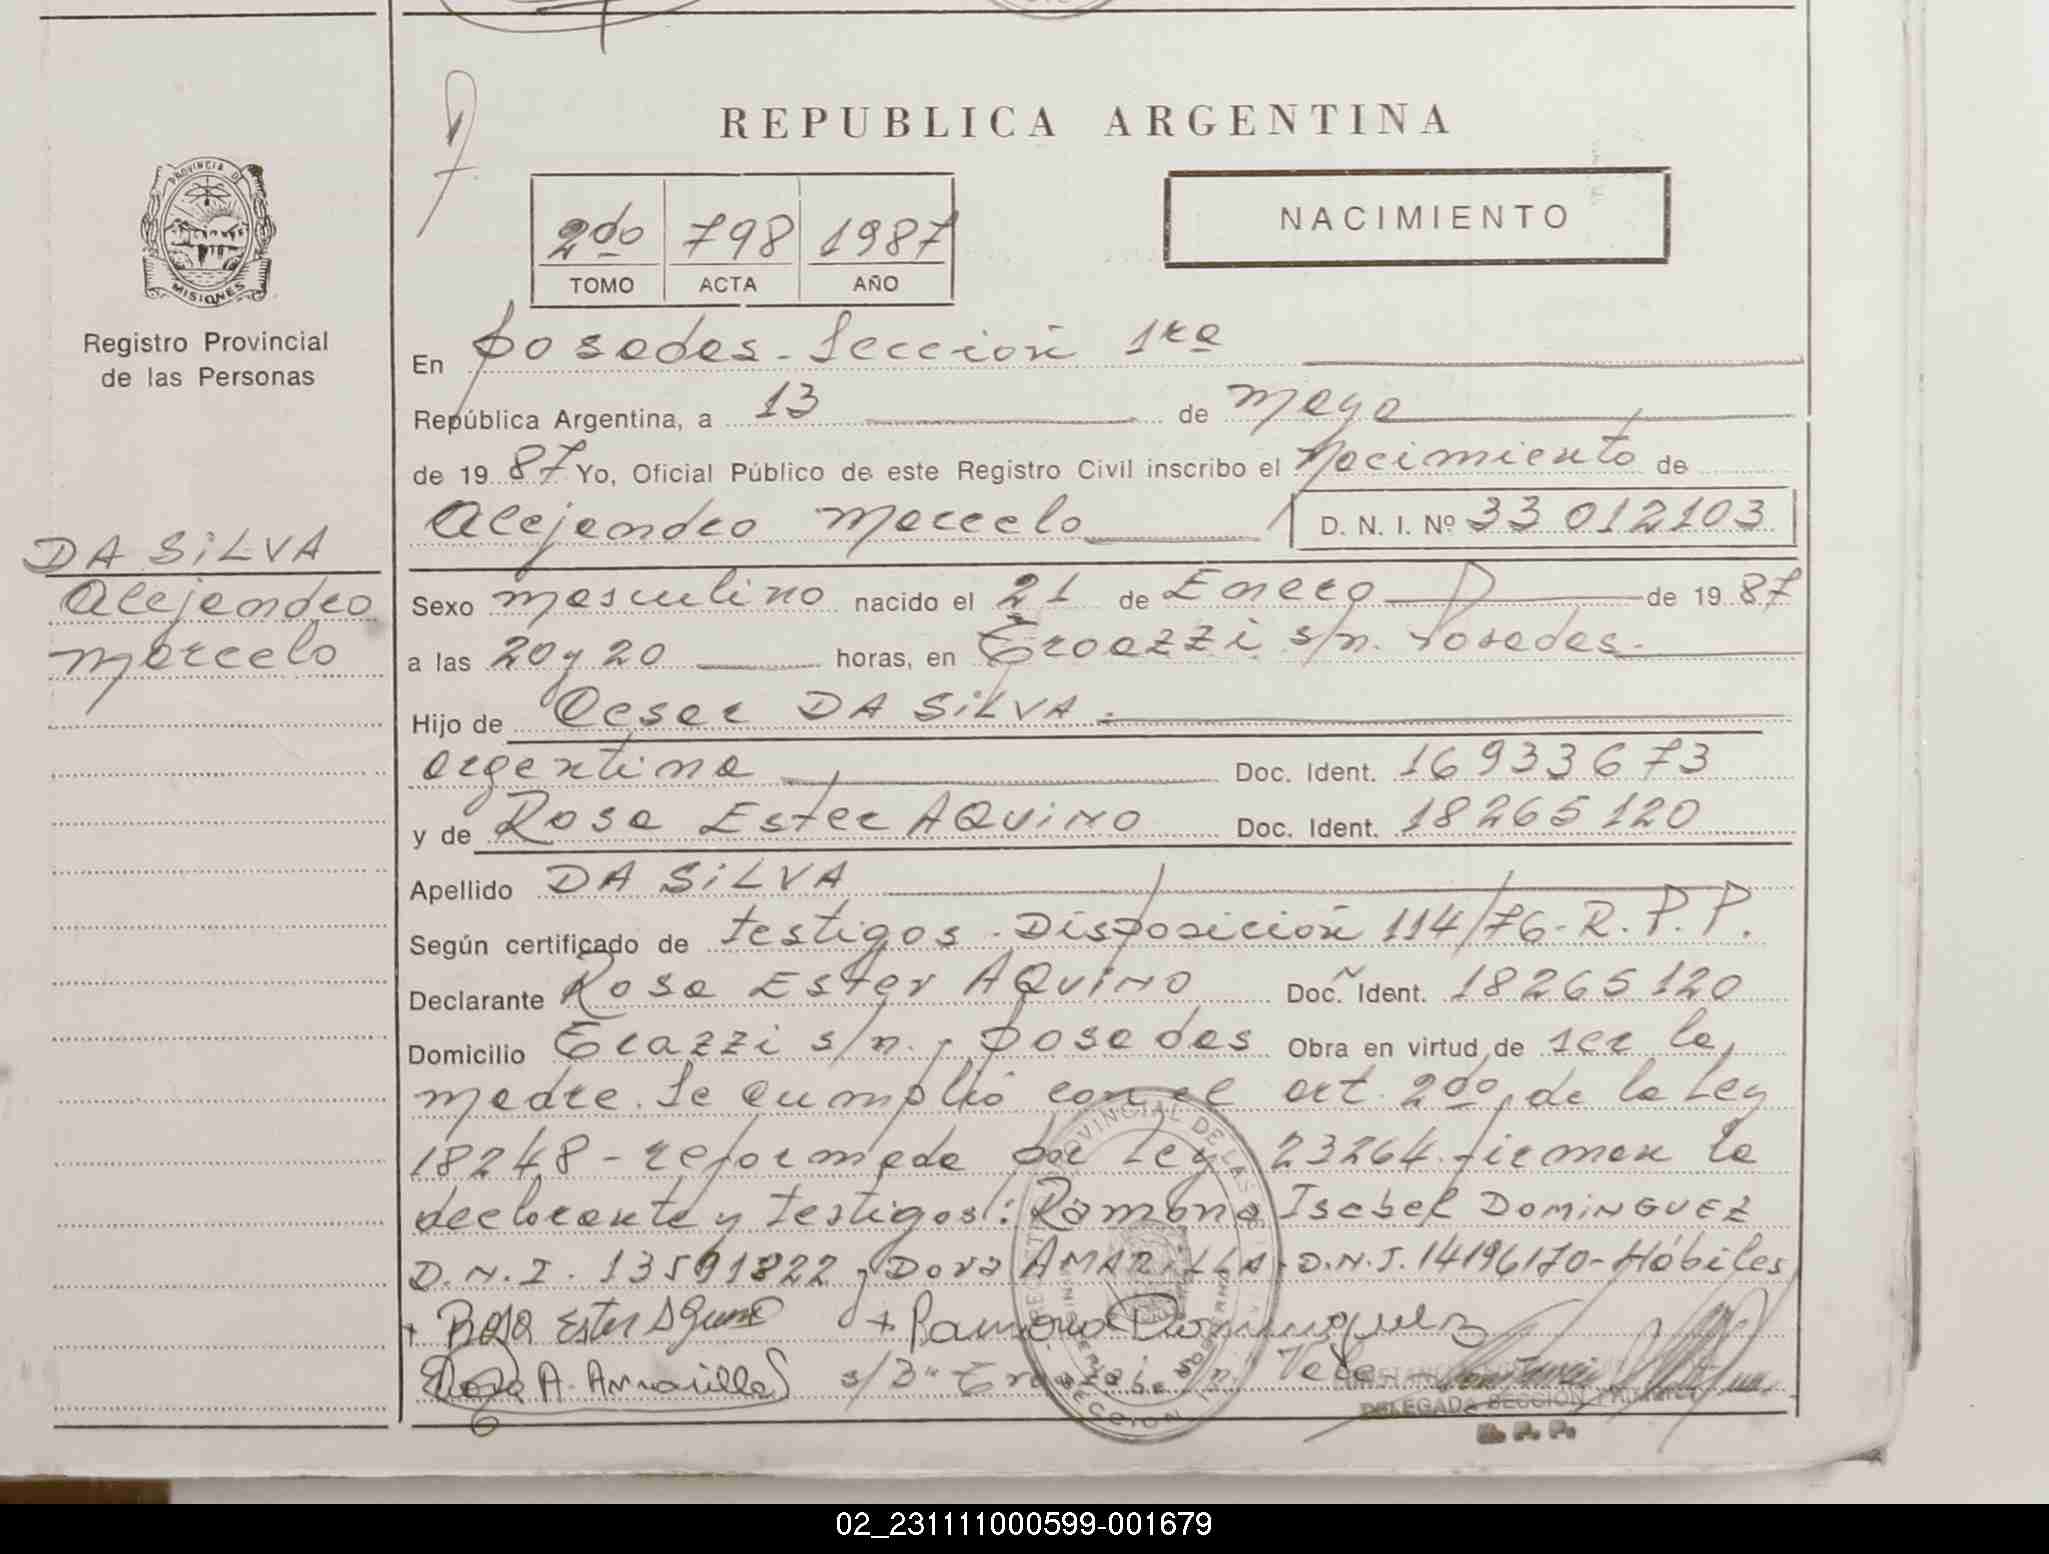 REPUBLICA ARGENTINA
NACIMIENTO
2do 798 1987
TOMO ACTA AÑO
PROVINCIA DE MISIONES
Registro Provincial
de las Personas
DA SILVA
Alejandro
Marcelo
En Posadas - Sección 1ra
República Argentina, a 13 de mayo
de 1987 Yo, Oficial Público de este Registro Civil inscribo el Nacimiento de
Alejandro Marcelo D. N. I. Nº 33 012103
Sexo masculino nacido el 21 de Enero de 1987
a las 20 y 20 horas, en s/n. Posadas.
Hijo de Cesar DA SILVA.
argentina Doc. Ident. 16933673
y de Rosa Ester AQUINO Doc. Ident. 18265120
Apellido DA SILVA
Según certificado de testigos - Disposición 114/76 - R.P.P.
Declarante Rosa Ester AQUINO Doc. Ident. 18265120
Domicilio s/n. Posadas Obra en virtud de ser la
madre. Se cumplió con el art. 2do de la Ley
18248 - reformada por Ley 23264 firman la
declarante y testigos: Ramona Isabel DOMINGUEZ
D.N.I. 13591822 y Dora AMARILLA - D.N.I. 14196170 - Hábiles
+ Rosa Ester Aquino + Ramona Dominguez
Dora A. Amarilla s/B" s/n." Vale.
DELEGADA SECCION PRIMERA
R. P. P.
02_231111000599-001679